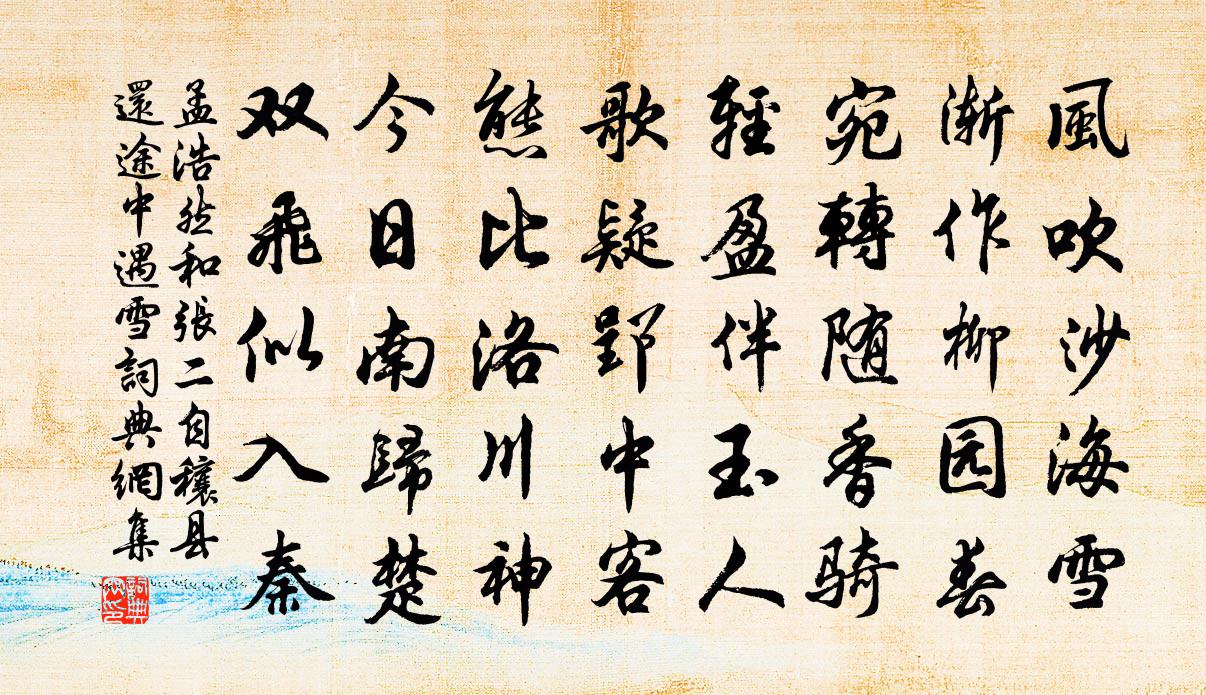 風吹沙海雪
漸作柳园春
宛轉随香骑
輕盈伴玉人
歌疑郢中客
態比洛川神
今日南歸楚
双飛似入秦
孟浩然和張二自穰县
還途中遇雪詞典網集